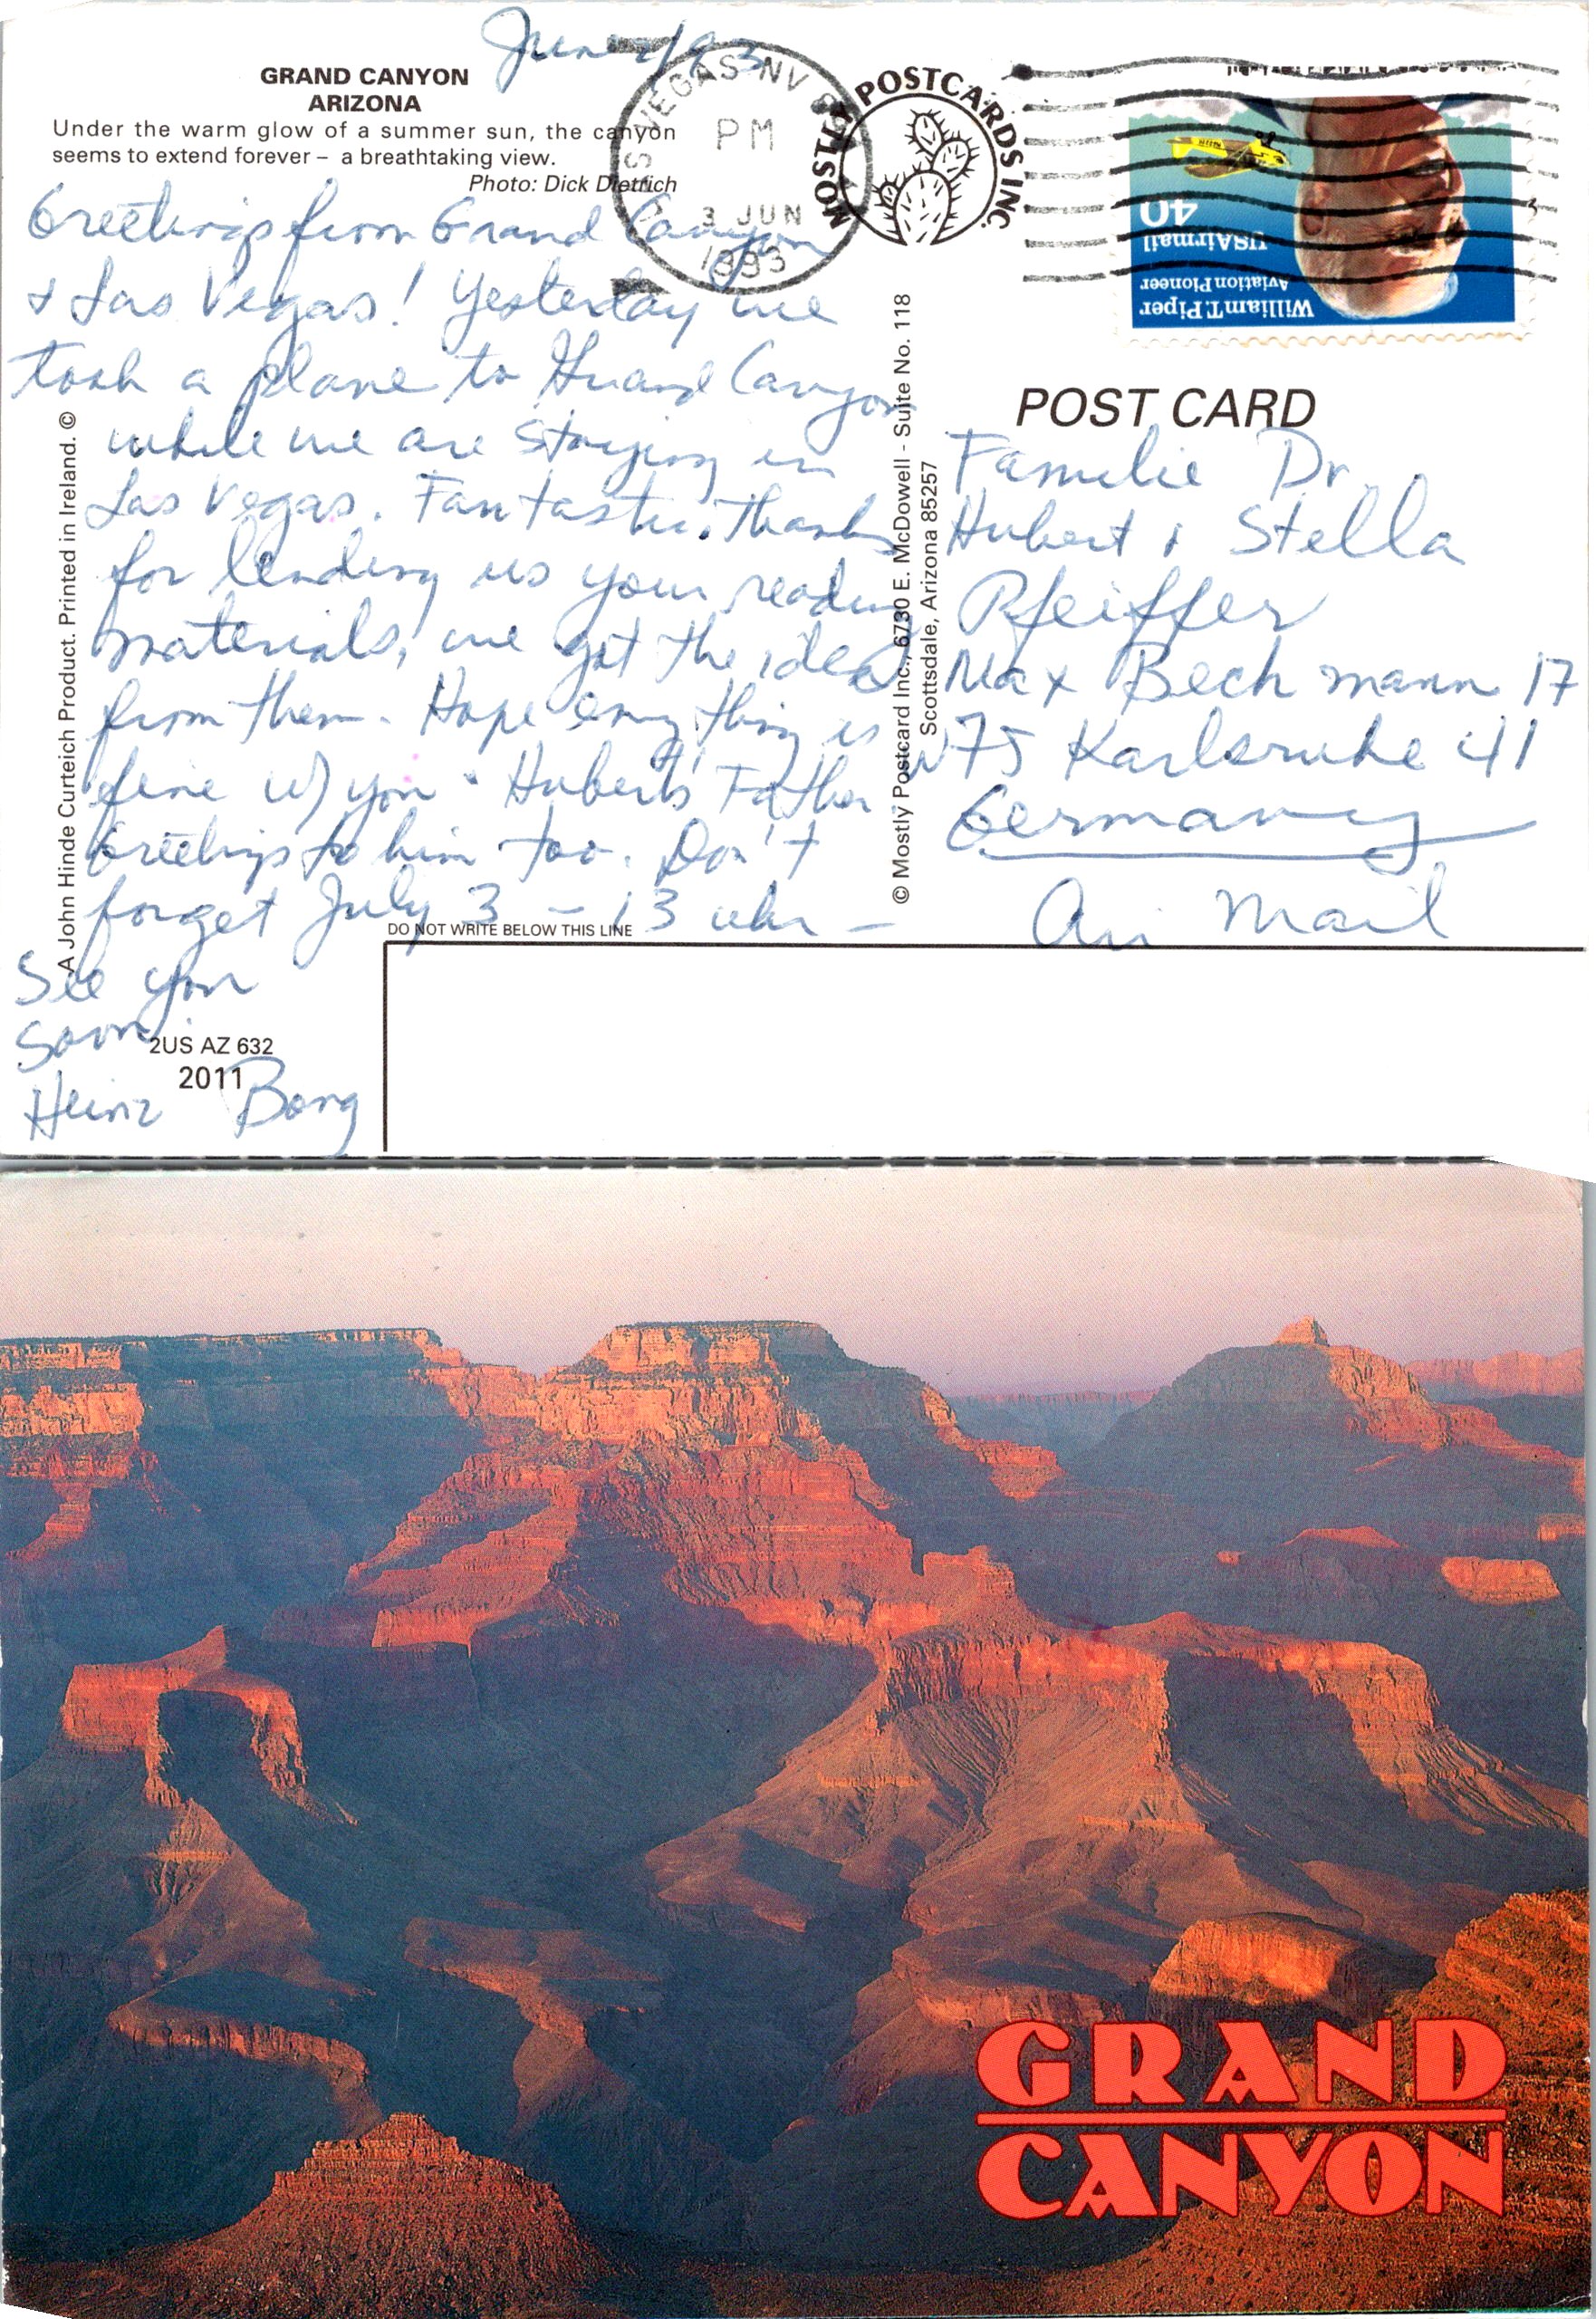 June 2/93
GRAND CANYON
ARIZONA
Under the warm glow of a summer sun, the canyon
seems to extend forever – a breathtaking view.
Photo: Dick Dietrich
VEGAS NV
PM
3 JUN
1993
MOSTLY POSTCARDS INC.
William T. Piper
Aviation Pioneer
USAirmail
40
Greetings from Grand Canyon
+ Las Vegas! Yesterday we
took a plane to Grand Canyon
while we are staying in
Las Vegas. Fantastic. Thanks
for lending us your reading
materials, we got the idea
from them. Hope everything is
fine w/ you + Hubert's Father
Greetings to him too. Don't
forget July 3 – 13 uhr –
See you
soon.
Heinz Bong
POST CARD
Familie Dr.
Hubert + Stella
Pfeiffer
Max Beckmann 17
W 75 Karlsruhe 41
Germany
Air Mail
A John Hinde Curteich Product. Printed in Ireland. ©
© Mostly Postcard Inc., 6730 E. McDowell - Suite No. 118
Scottsdale, Arizona 85257
DO NOT WRITE BELOW THIS LINE
2US AZ 632
2011
GRAND
CANYON